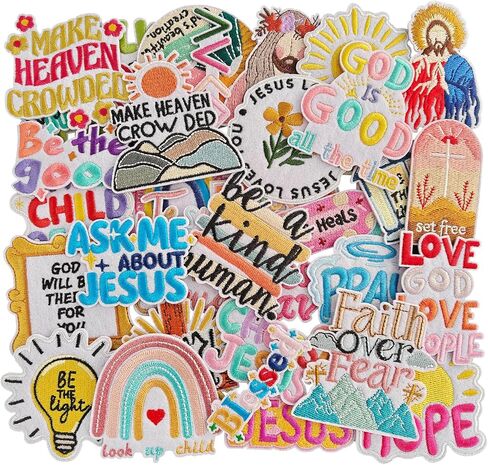 MAKE
HEAVEN
CROWDED
MAKE HEAVEN
CROWDED
creation.
JESUS LO
YOU
JESUS LOVE
GOD
is
GOOD
all the time
Be the
good
CHILD
ASK ME
ABOUT
JESUS
be a
kind
human.
Heals
set free
LOVE
GOD
LOVE
PEOPLE
GOD
WILL B
THE
FO
YO
PRA
Faith
over
Fear
BE
THE
light
look up child
CH
JES
Blessed
JESUS
HOPE